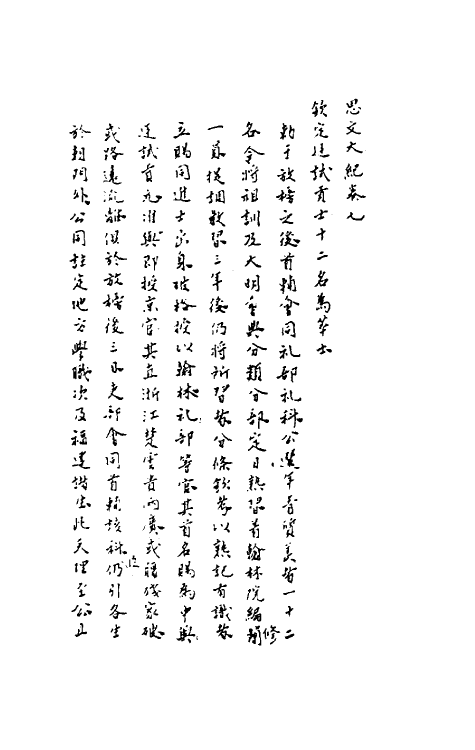 思文大紀卷七
欽定廷試貢士十二名為萃士
勅于放榜之後首輔會同礼部礼科公選年青質美者一十二
各令将祖訓及大明會典分類分部定日熟習着翰林院編修
一員提調教習三年後仍将所習者分條欽考以熟記有識者
立賜同進士出身破格授以翰林礼部等官其首名賜為中興
廷試首元准與即授京官其直浙江楚雲貴两廣或
或路遠流離俱於放榜後三日吏部會同首輔該科仍引各生
於朝門外公同註定地方學職次及福建諸生此天理至公且